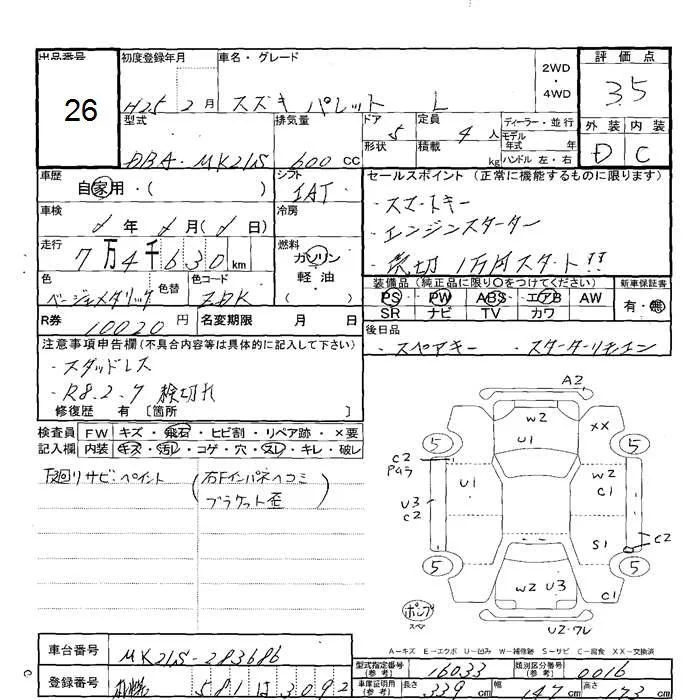 出品番号
26
初度登録年月
H25 2月
車名・グレード
スズキ パレット L
2WD
・
4WD
評価点
3.5
外装 内装
D C
型式
DBA-MK21S
排気量
600 CC
ドア 5
形状
定員 4 人
積載 kg
ディーラー・並行
モデル
年式 年
ハンドル 左・右
車歴
自家用・( )
シフト
IAT
セールスポイント (正常に機能するものに限ります)
・スマートキー
・エンジンスターター
・売切 1万円スタート!!
車検
年 月( 日)
冷房
走行
7万4千630 km
燃料
ガソリン
軽油
( )
色
ベージュメタリック
色替
色コード
ZDK
装備品 (純正品に限り○をつけてください)
PS PW ABS エアB AW
SR ナビ TV カワ
新車保証書
有・無
R券 10020 円
名変期限 月 日
後日品
・スペアキー ・スターターリモコン
注意事項申告欄 (不具合内容等は具体的に記入して下さい)
・スタッドレス
・R8.2.7 検切れ
修復歴 有 [箇所 ]
検査員 FW キズ・飛石・ヒビ割・リペア跡・×要
記入欄 内装 キズ・汚レ・コゲ・穴・スレ・キレ・破レ
下廻リサビ・ペイント
(右Fインパネヘコミ
ブラケット歪)
A2
W2
U1
XX
5 5
C2
Pはラ
U1
W2
C1
U3
C2
S1
C2
5 5
W2 U3
C1
ポンプ
スペア
U2・ワレ
A-キズ E-エクボ U-凹み W-補修跡 S-サビ C-腐食 XX-交換済
車台番号 MK21S-283686
登録番号 581 は 3092
型式指定番号
(参考)
16033
類別区分番号
(参考)
0016
車庫証明用
(参考)
長さ 339 cm 幅 147 cm 高さ 173 cm